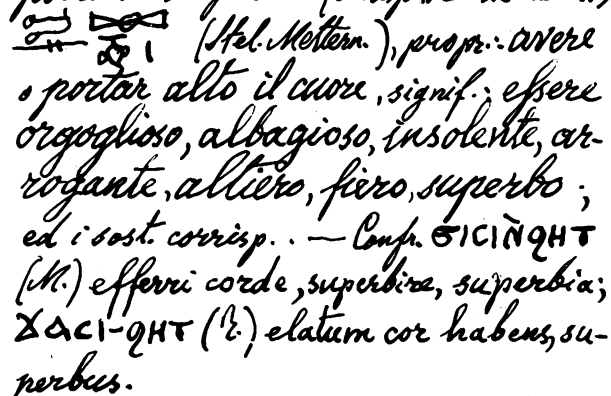 (Stel. Mettern.), propr.: avere
o portar alto il cuore, signif.: essere
orgoglioso, albagioso, insolente, ar-
rogante, altiero, fiero, superbo;
ed i sost. corrisp.. — Confr. ϭⲓⲥⲓⲛ̀ϩⲏⲧ
(M.) efferri corde, superbire, superbia;
ϫⲁⲥⲓ-ϩⲏⲧ (ⲓ.) elatum cor habens, su-
perbus.